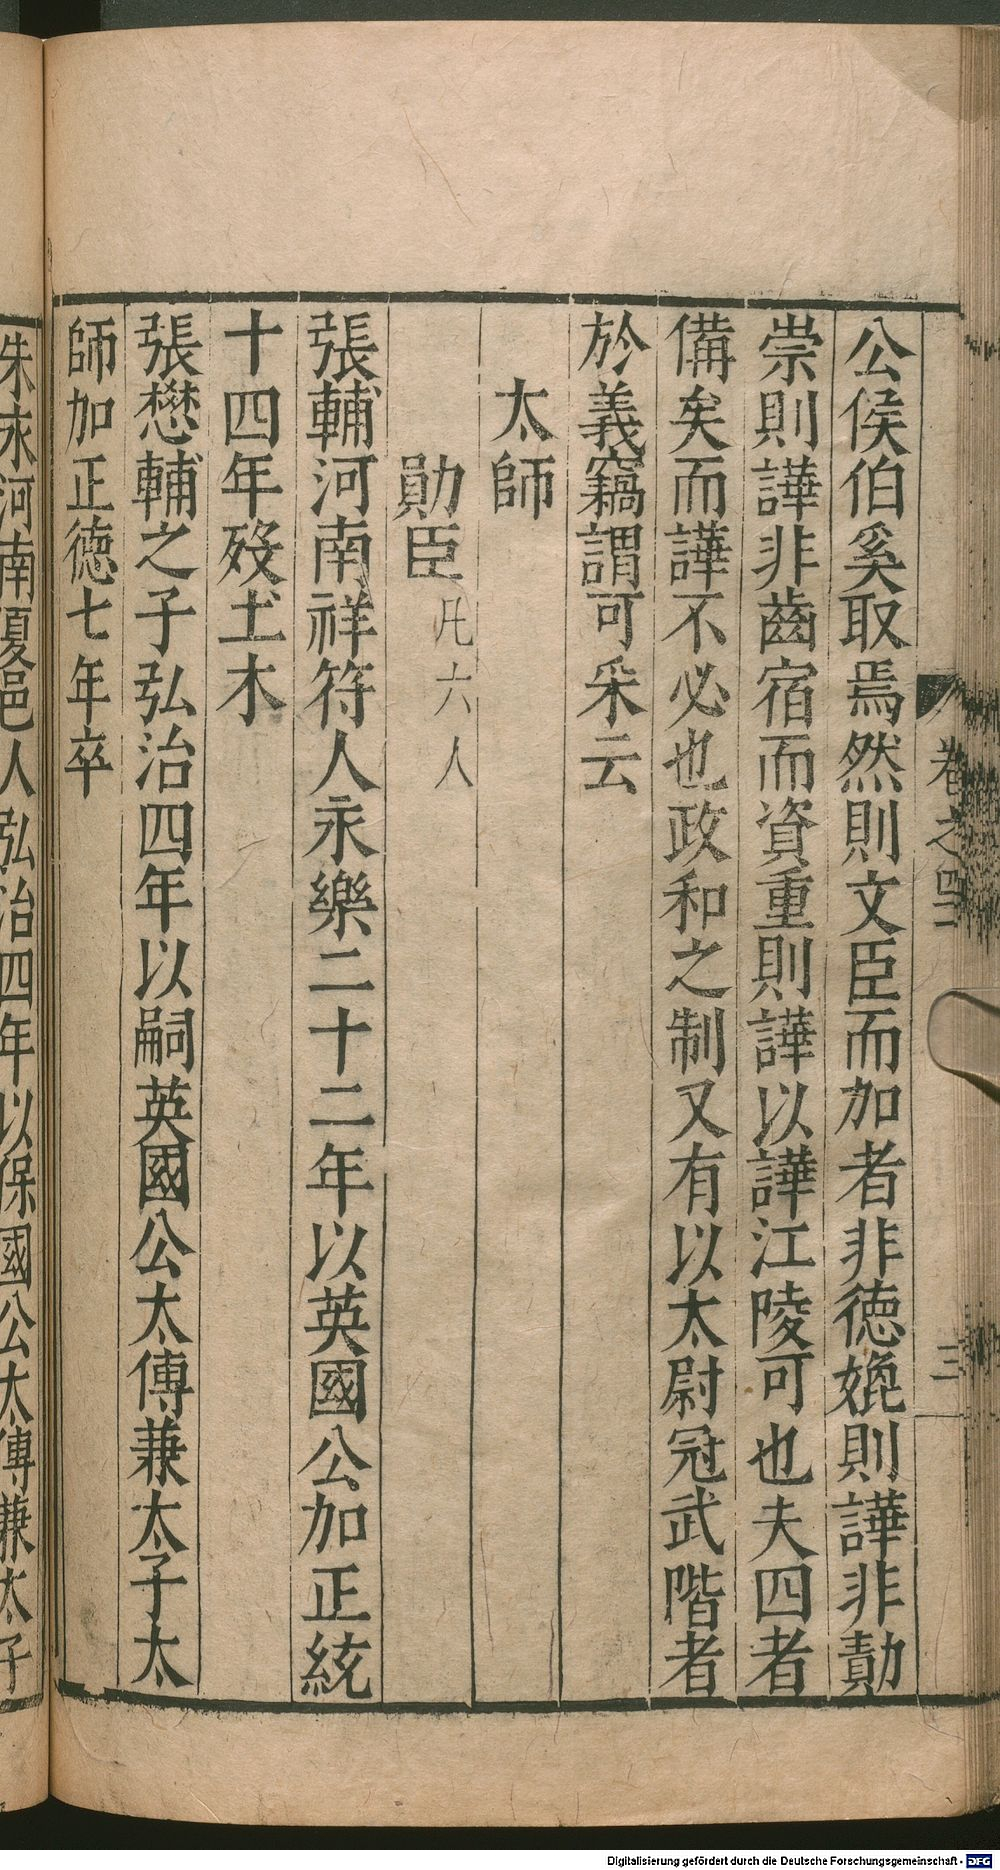 卷之四二
三
公侯伯奚取焉然則文臣而加者非德娩則譁非勣
崇則譁非齒宿而資重則譁以譁江陵可也夫四者
備矣而譁不必也政和之制又有以太尉冠武階者
於義竊謂可釆云
太師
勛臣凡六人
張輔河南祥符人永樂二十二年以英國公加正統
十四年歿土木
張懋輔之子弘治四年以嗣英國公太傅兼太子太
師加正德七年卒
朱永河南夏邑人弘治四年以保國公太傅兼太子
Digitalisierung gefördert durch die Deutsche Forschungsgemeinschaft - DFG